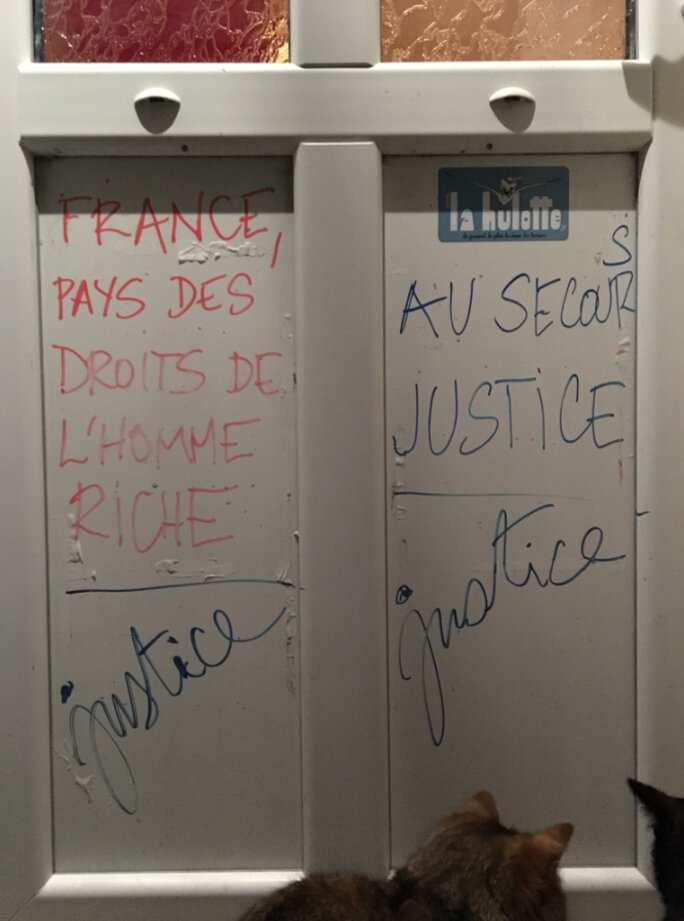 FRANCE,
PAYS DES
DROITS DE
L'HOMME
RICHE
justice
la hulotte
AU SECOURS
JUSTICE
justice